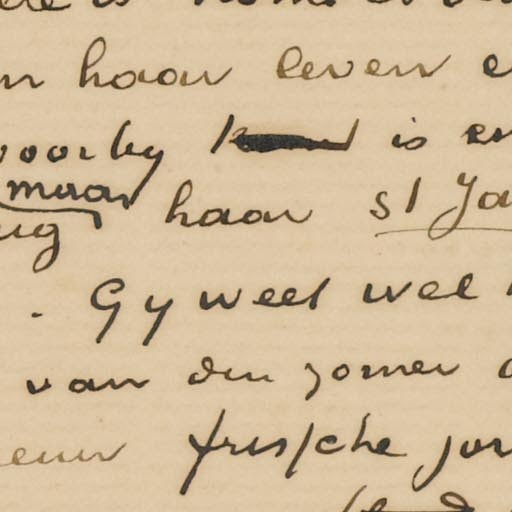 haar leven
voorby is
maar
haar St Ja
. Gy weet wel
van den zomer
frissche